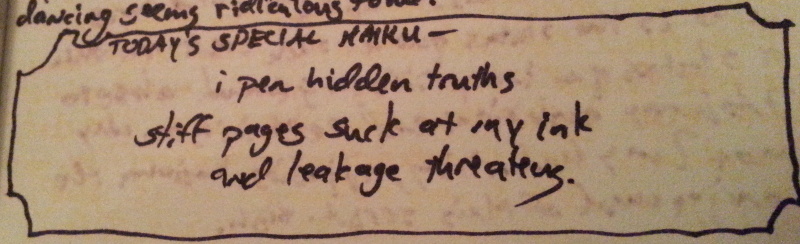 dancing seems ridiculous to me.
TODAY'S SPECIAL HAIKU —
i pen hidden truths
stiff pages suck at my ink
and leakage threatens.